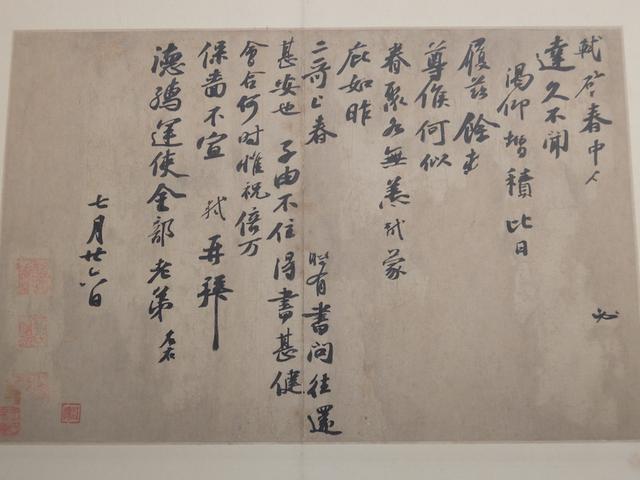 軾啓春中人 必
達久不聞
渴仰增積比日
履茲餘
尊候何似
眷聚各無恙軾蒙
庇如昨
二哥上春 時有書問往還
甚安也 子由不住得書甚健
會合何时惟祝倍万
保嗇不宣 軾再拜
德孺運使金部老弟 左右
七月廿六日